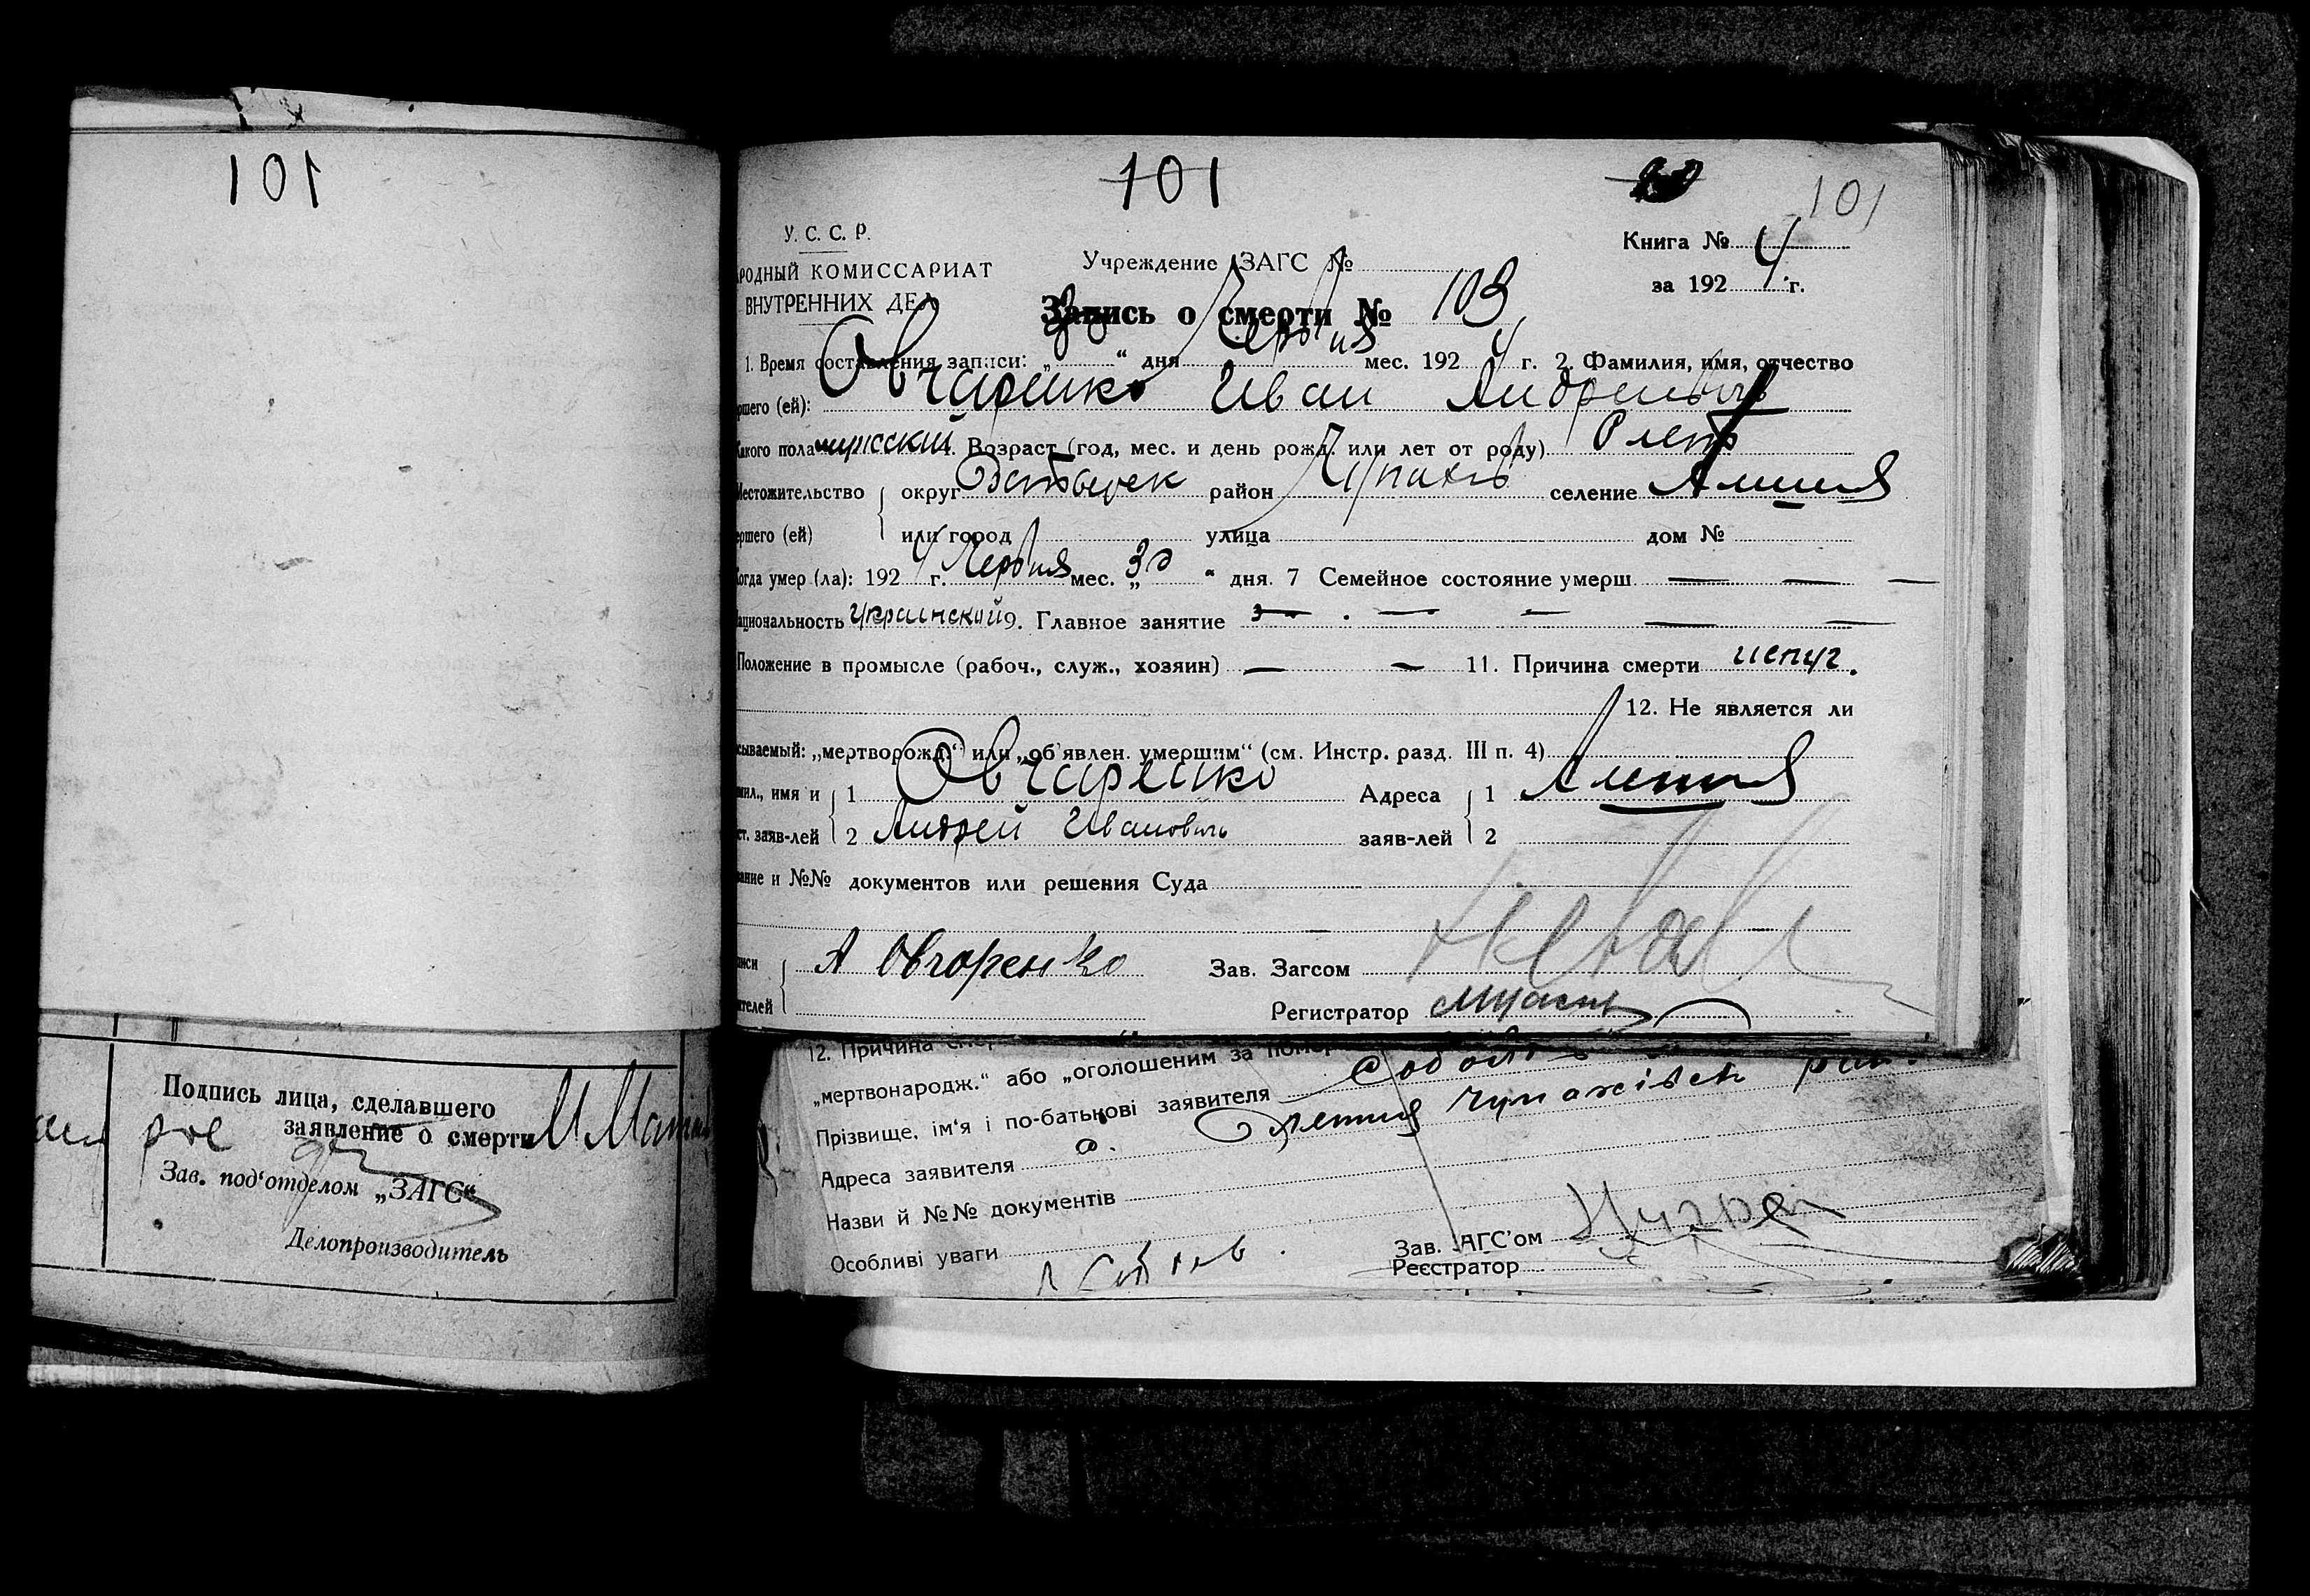 101
101
101
У. С. С. Р.
РОДНЫЙ КОМИССАРИАТ
ВНУТРЕННИХ ДЕЛ
Учреждение ЗАГС №
Книга № 4
за 1924 г.
Запись о смерти № 103
1. Время составления записи: „ “ дня Червня мес. 1924 г. 2. Фамилия, имя, отчество
ршего (ей): Овчаренко Иван Андреевич
какого пола мужский 4. Возраст (год, мес. и день рожд. или лет от роду) лет
Местожительство округ район селение
ершего (ей) или город улица дом №
Когда умер (ла): 1924 г. Червня мес. „30“ дня. 7 Семейное состояние умерш. — — —
ациональность Украинской 9. Главное занятие — — — — —
Положение в промысле (рабоч., служ., хозяин) — — 11. Причина смерти испуг.
12. Не является ли
сываемый: „мертворожд.“ или „об'явлен. умершим“ (см. Инстр. разд. III п. 4)
мил., имя и 1 Овчаренко Адреса 1
ст. заяв-лей 2 Андрей Иванович заяв-лей 2
вание и №№ документов или решения Суда
писи А Овчаренко Зав. Загсом
ителей Регистратор
Подпись лица, сделавшего
заявление о смерти
Зав. под'отделом „ЗАГС“
Делопроизводитель
12. Причина
„мертвонародж.“ або „оголошеним за
Прізвище, ім'я і по-батькові заявителя
Адреса заявителя
Назви й №№ документів
Особливі уваги
Зав. ЗАГС'ом
Реєстратор